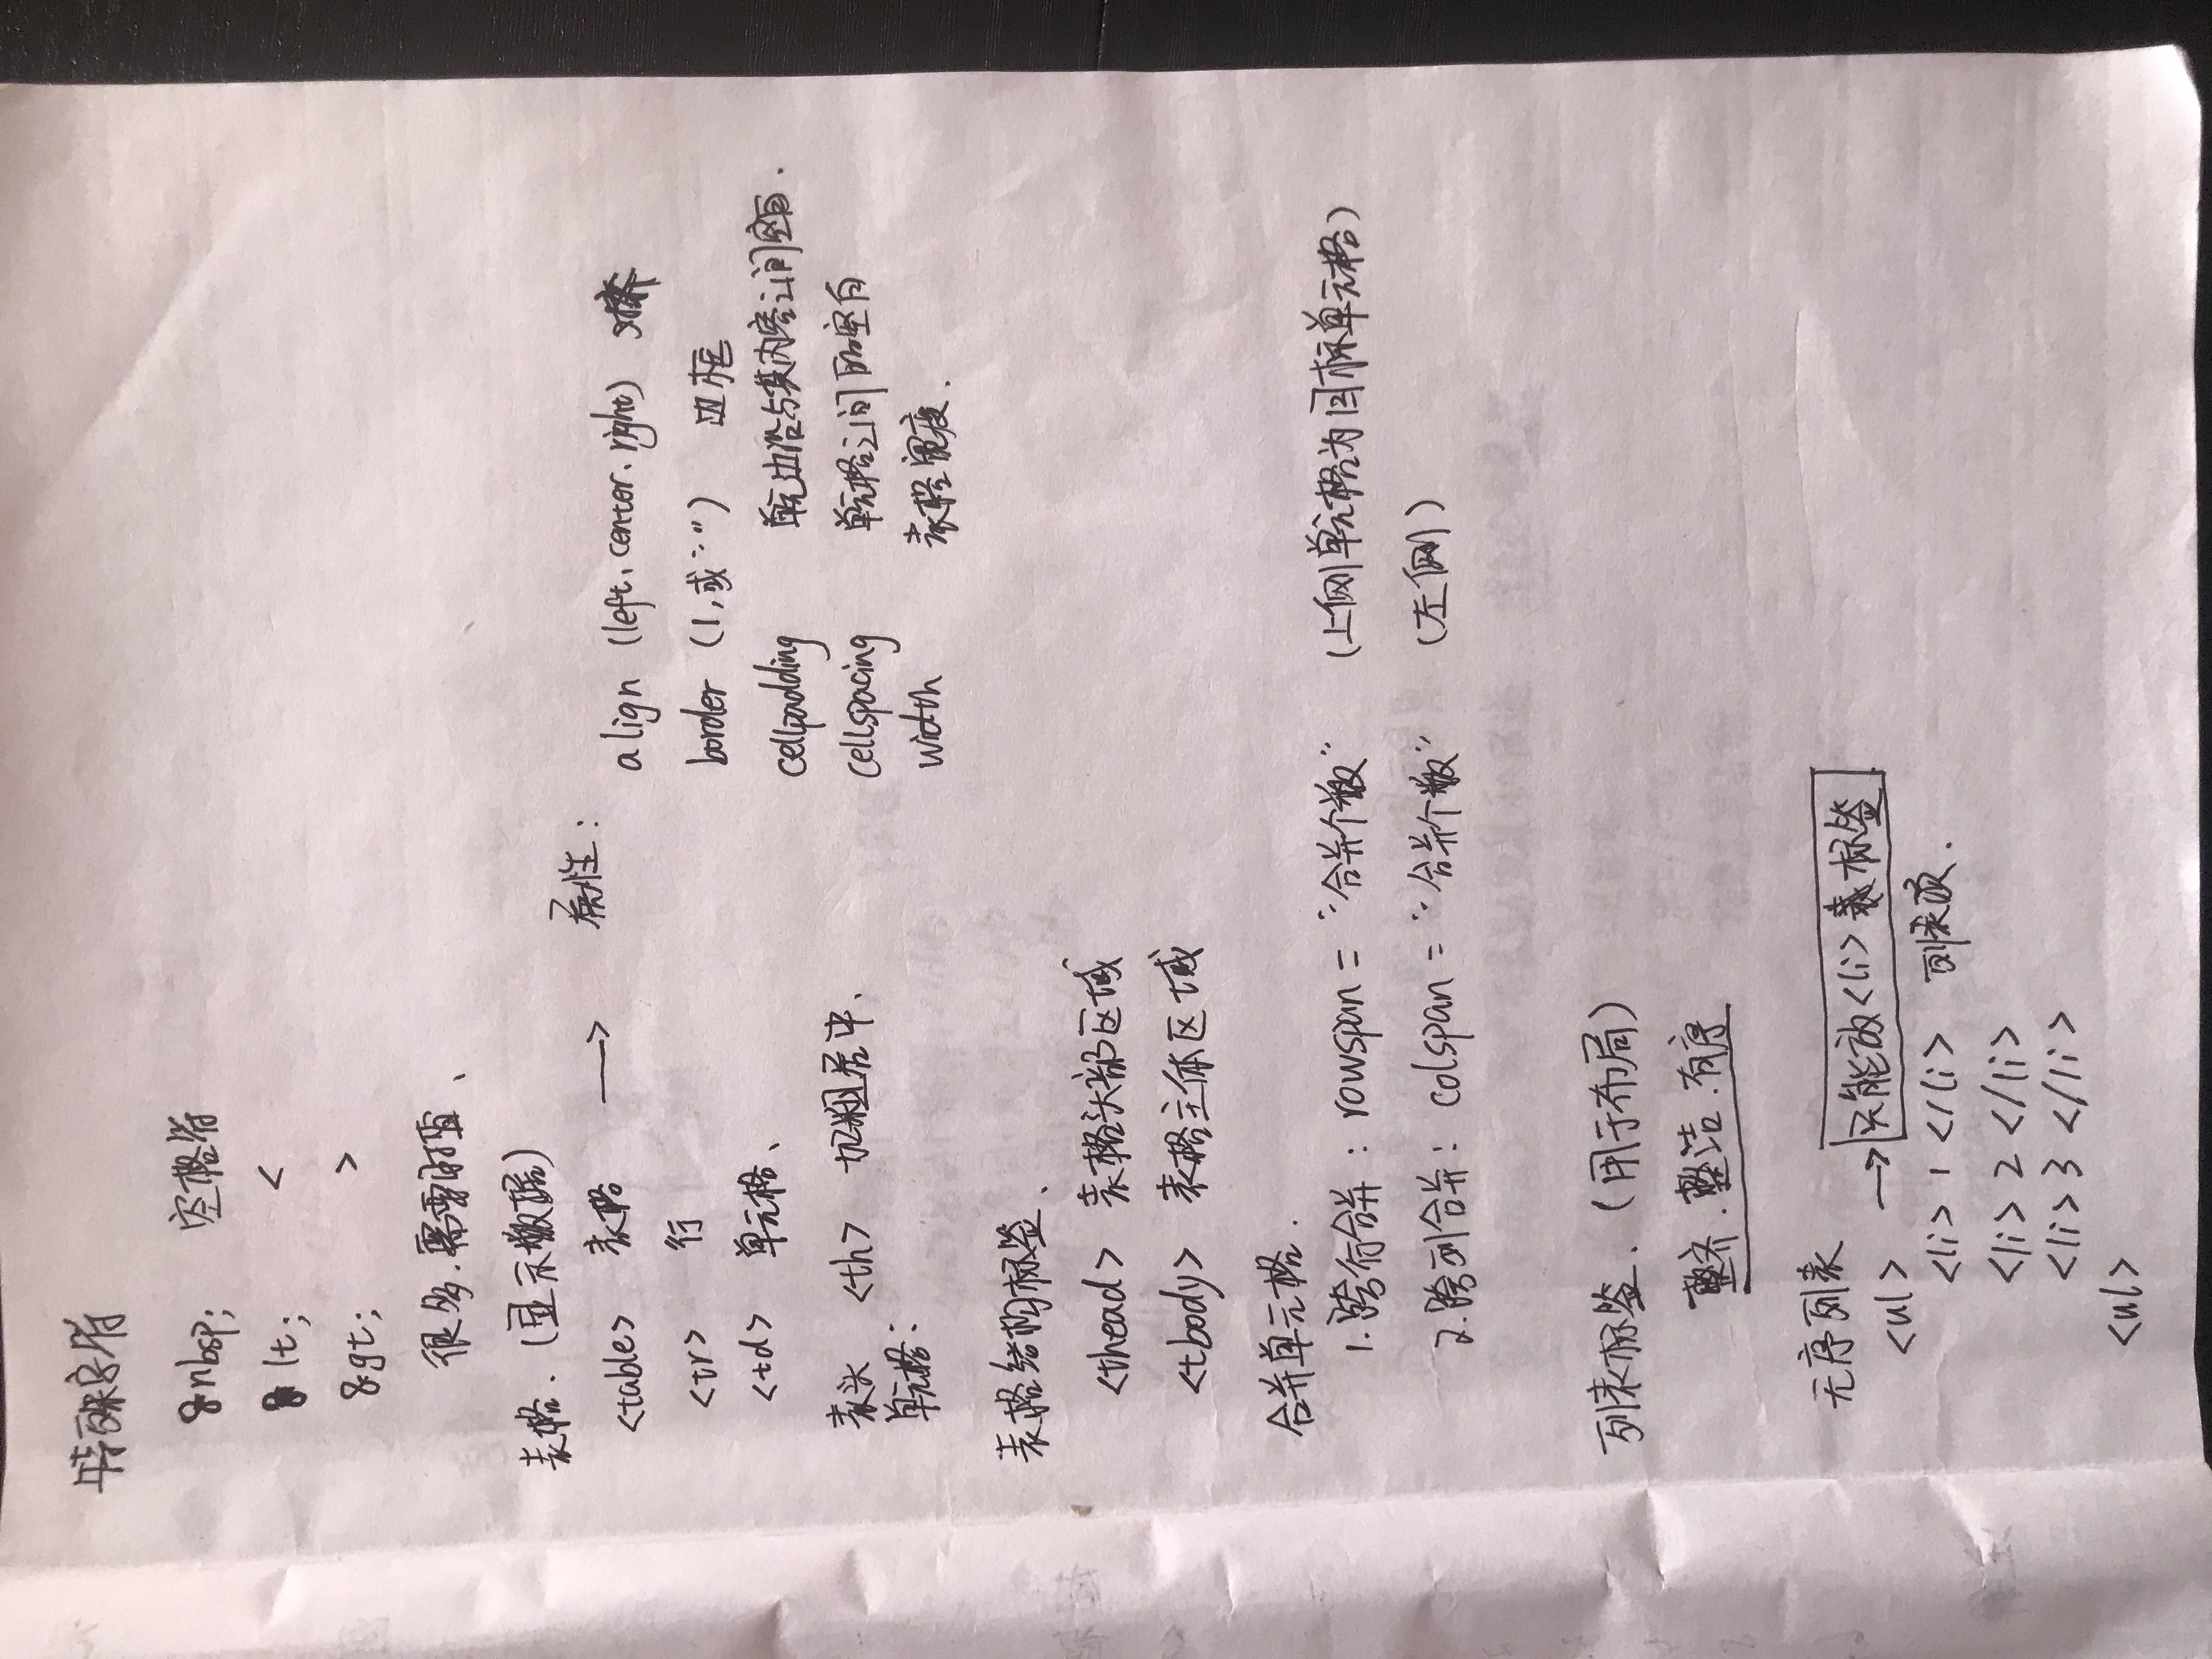 特殊字符
&nbsp; 空格符
&lt; <
&gt; >
很多.需要时查、
表格.(显示数据)
<table> 表格 → 属性:
<tr> 行
<td> 单元格、
表头 <th> 加粗居中、
单元格:
align (left、center、right) 对齐
border (1,或“”) 边框
cellpadding 单元边沿与其内容之间空白.
cellspacing 单元格之间的空白
width 表格宽度.
表格结构标签、
<thead> 表格头部区域
<tbody> 表格主体区域
合并单元格.
1.跨行合并: rowspan = “合并个数” (上侧单元格为目标单元格)
2.跨列合并: colspan = “合并个数” (左侧)
列表标签.(用于布局)
整齐.整洁.有序
无序列表
<ul> → 只能放<li>标签
<li> 1 </li> 列表项.
<li> 2 </li>
<li> 3 </li>
<ul>